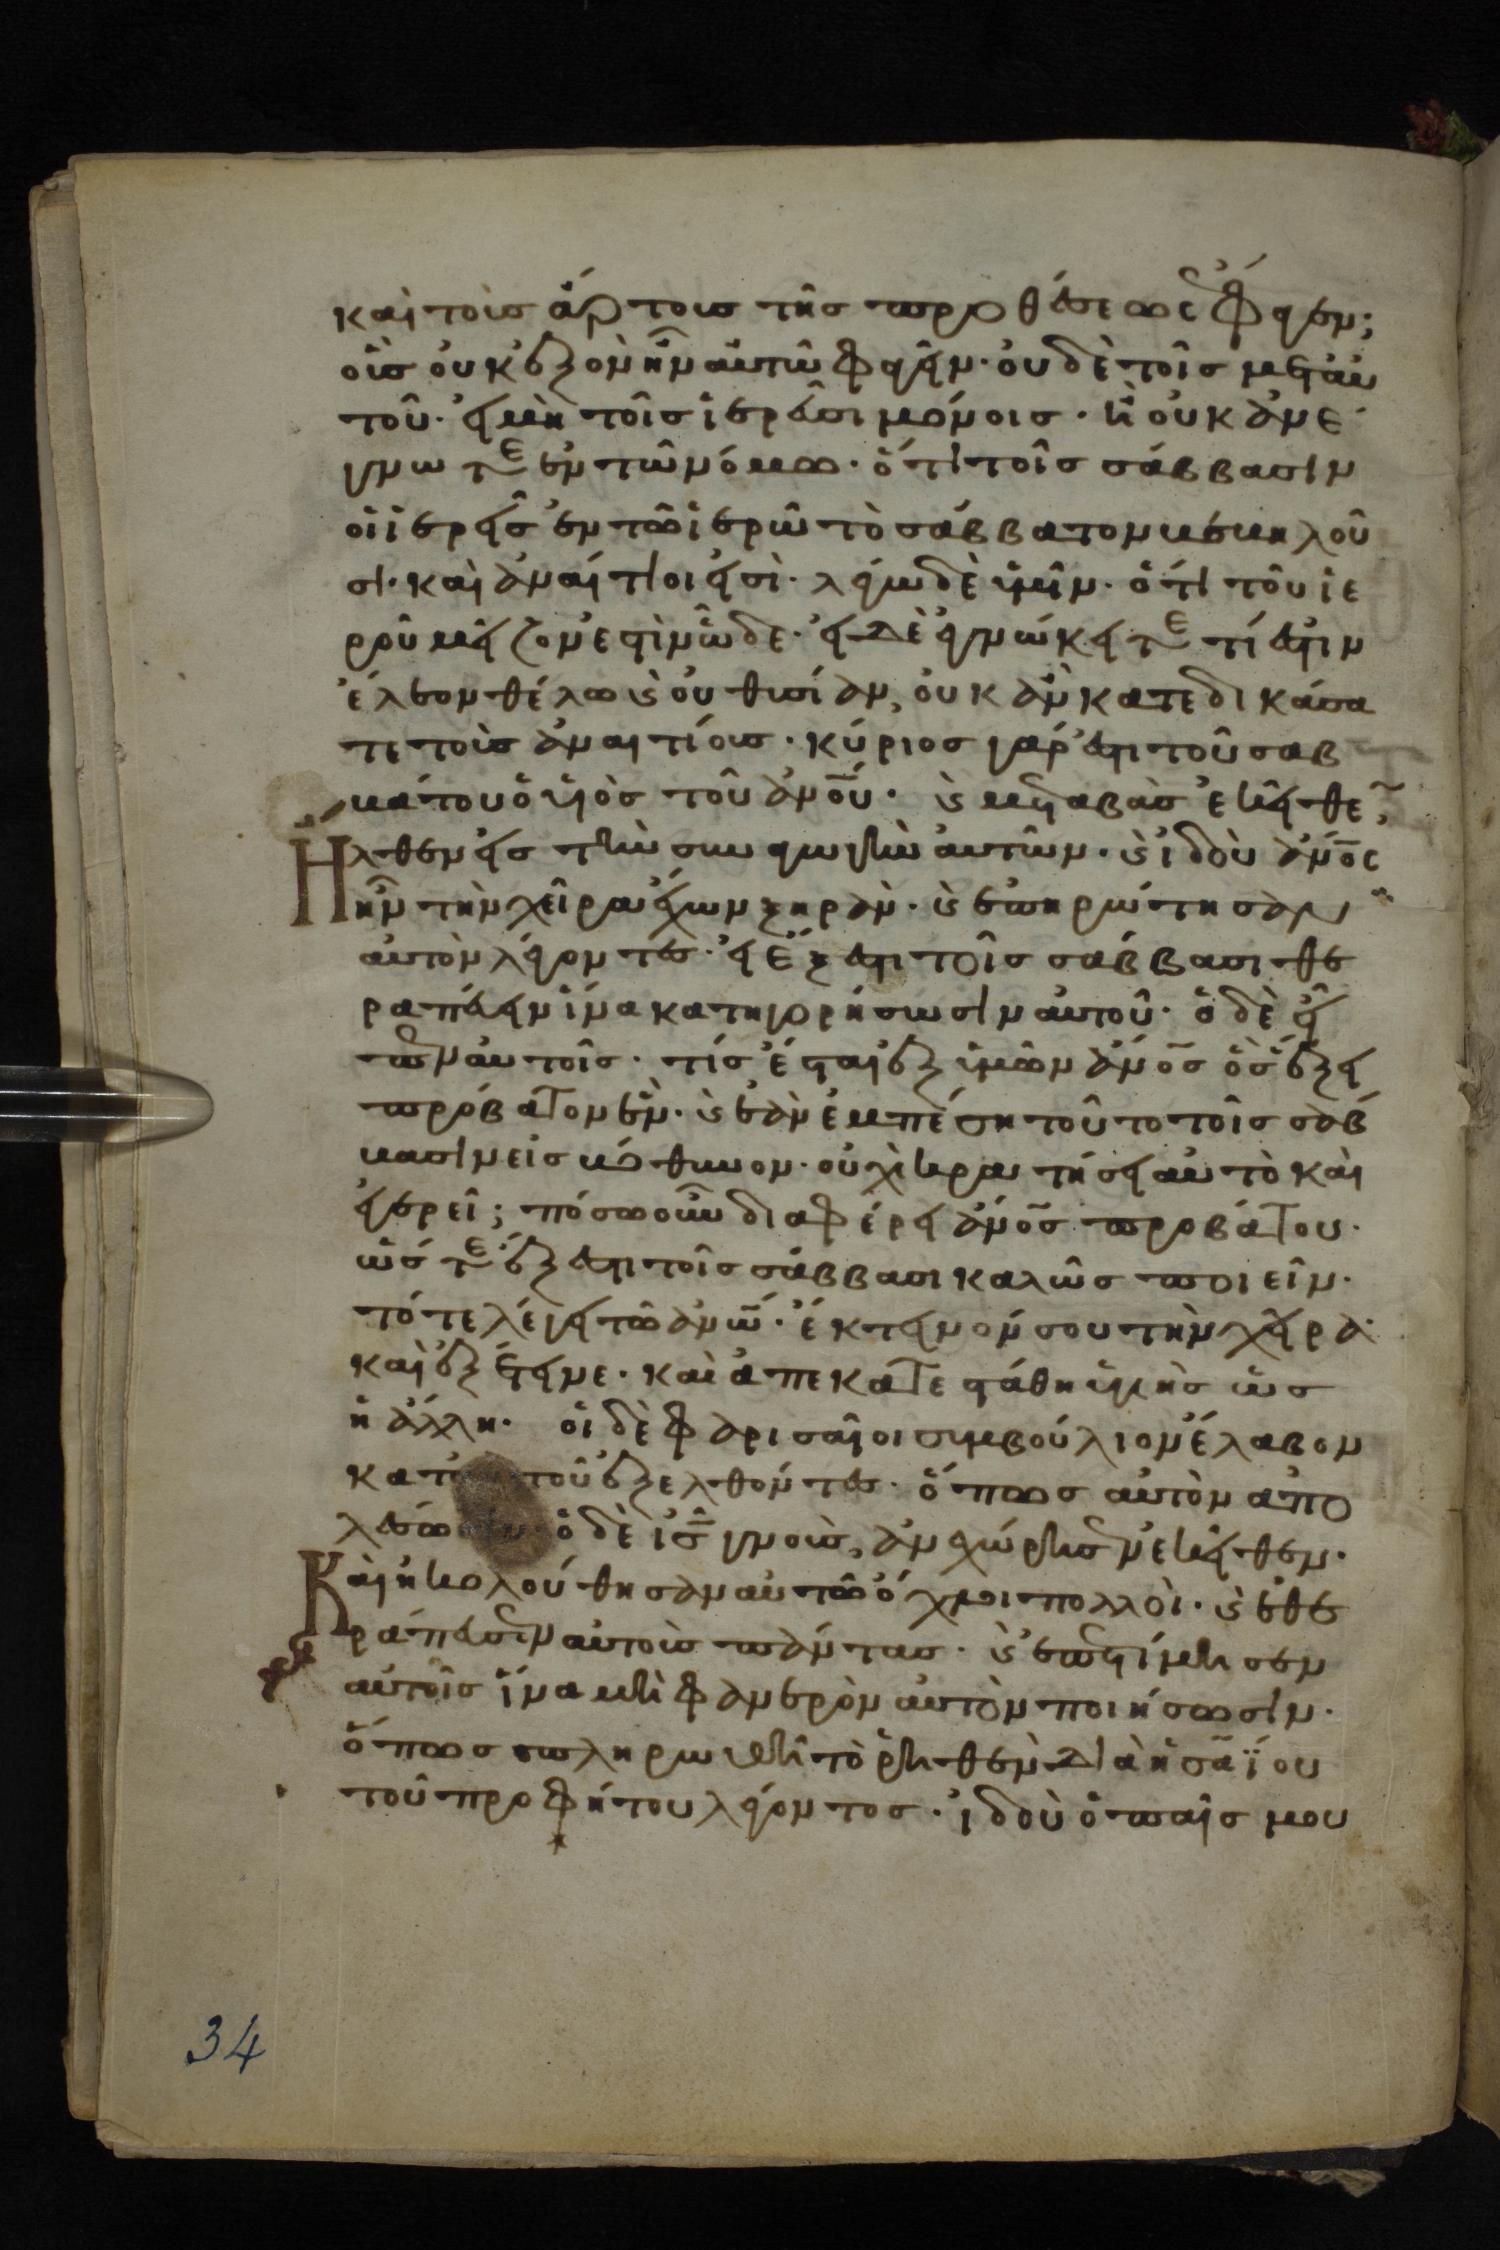 καὶ τοὺς ἄρτους τῆς προθέσεως ἔφαγεν;
οὓς οὐκ ἐξὸν ἦν αὐτῶ φαγεῖν· οὐδὲ τοῖς μετ αὐ
τοῦ· εἰ μὴ τοῖς ἱερεῦσι μόνοις· ἢ οὐκ ἀνέ
γνωτε ἐν τῶ νόμω· ὅτι τοῖς σάββασιν
οἱ ἱερεῖς ἐν τῶ ἱερῶ τὸ σάββατον βεβηλοῦ
σι· καὶ ἀναίτιοι εἰσὶ· λέγω δὲ ὑμῖν· ὅτι τοῦ ἱε
ροῦ μείζον ἐστὶν ὧδε· εἰ δὲ ἐγνώκειτε τί ἐστιν
ἔλεον θέλω καὶ οὐ θυσίαν, οὐκ ἂν κατεδικάσα
τε τοὺς ἀναιτίους· κύριος γάρ ἐστι τοῦ σαβ
βάτου ὁ υἱὸς τοῦ ἀνου· καὶ μεταβὰς ἐκεῖθεν
Ηλθεν εἰς τὴν συναγωγὴν αὐτῶν· καὶ ἰδοὺ ἀνος
ἦν τὴν χεῖρα ἔχων ξηράν· καὶ ἐπηρώτησαν
αὐτὸν λέγοντες· εἰ ἔξεστι τοῖς σάββασι θε
ραπεύειν ἵνα κατηγορήσωσιν αὐτοῦ· ὁ δὲ εἶ
πεν αὐτοῖς· τίς ἔσται ἐξ ὑμῶν ἀνος ὃς ἕξει
πρόβατον ἕν· καὶ ἐὰν ἐμπέση τοῦτο τοῖς σάβ
βασιν εἰς βόθυνον· οὐχὶ κρατήσει αὐτὸ καὶ
ἐγερεῖ; πόσω οὖν διαφέρει ἀνος προβάτου·
ὥστε ἔξεστι τοῖς σάββασι καλῶς ποιεῖν·
τότε λέγει τῶ ἀνω· ἔκτεινόν σου τὴν χεῖρα·
καὶ ἐξέτεινε· καὶ ἀπεκατεστάθη ὑγιὴς ὡς
ἡ ἄλλη· οἱ δὲ φαρισαῖοι συμβούλιον ἔλαβον
κατ τοῦ ἐξελθόντες· ὅπως αὐτὸν ἀπο
λέσω ὁ δὲ ις γνοὺς, ἀνεχώρησεν ἐκεῖθεν·
Καὶ ἠκολούθησαν αὐτῶ ὄχλοι πολλοὶ· καὶ ἐθε
ράπευσεν αὐτοὺς πάντας· καὶ ἐπετίμησεν
αὐτοῖς ἵνα μὴ φανερὸν αὐτὸν ποιήσωσιν·
ὅπως πληρωθῆ τὸ ῥηθὲν διὰ ἡσαΐου
τοῦ προφήτου λέγοντος· ἰδοὺ ὁ παῖς μου
34